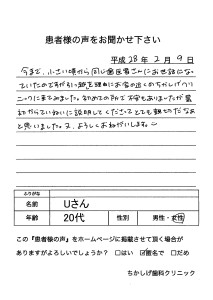 患者様の声をお聞かせ下さい
平成28年2月9日
今まで、小さい頃から同じ歯医者さんにお世話になっ
ていたのですが引っ越を理由にお家の近くのちかしげクリ
ニックに来てみました。初めての所で不安もありましたが最
初からていねいに説明してくださってとても親切だなぁ
と思いました。又、よろしくお願いします。
ふりがな
名前 Uさん
年齢 20代 性別 男性・女性
この『患者様の声』をホームページに掲載させて頂く場合が
ありますがよろしいでしょうか? □はい ☑匿名で □だめ
ちかしげ歯科クリニック